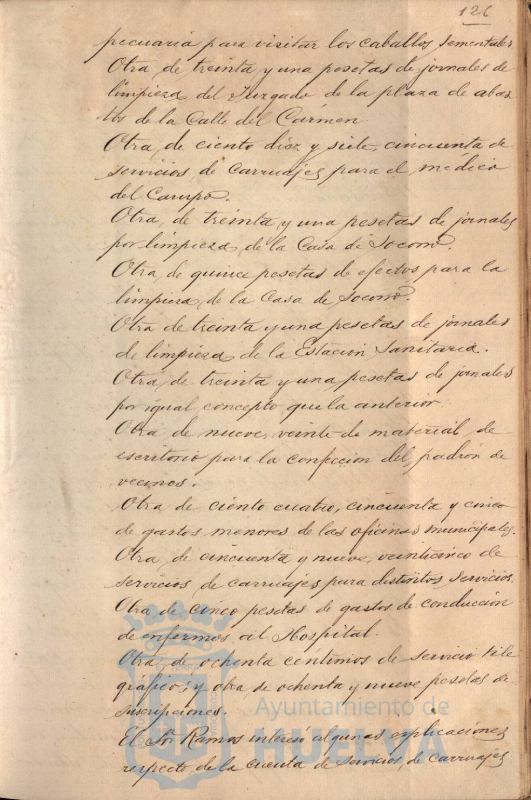 126
pecuaria para visitar los caballos sementales
Otra de treinta y una pesetas de jornales de
limpieza del Juzgado de la plaza de abas
tos de la Calle del Cármen.
Otra de ciento diez y siete, cincuenta de
servicios de carruajes para el medico
del Campo.
Otra de treinta y una pesetas de jornales
por limpieza de la Casa de Socorro.
Otra de quince pesetas de efectos para la
limpieza de la Casa de Socorro.
Otra de treinta y una pesetas de jornales
de limpieza de la Estacion Sanitaria.
Otra de treinta y una pesetas de jornales
por igual concepto que la anterior.
Otra de nueve, veinte de material de
escritorio para la confeccion del padron de
vecinos.
Otra de ciento cuatro, cincuenta y cinco
de gastos menores de las oficinas municipales.
Otra de cincuenta y nueve, veinticinco de
servicios de carruajes para distintos servicios.
Otra de cinco pesetas de gastos de conducción
de enfermos al Hospital.
Otra de ochenta céntimos de servicio tele
grafico; y otra de ochenta y nueve pesetas de
suscripciones.
El Sr. Ramos interesó algunas esplicaciones
respecto de la cuenta de servicios de carruajes
Ayuntamiento de
HUELVA